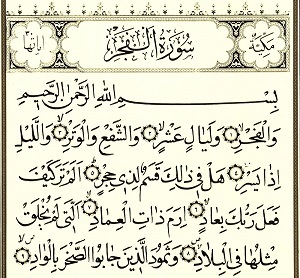 مكية سورة الفجر آياتها ٣٠
بِسْمِ اللَّهِ الرَّحْمَٰنِ الرَّحِيمِ
وَالْفَجْرِ ۝١ وَلَيَالٍ عَشْرٍ ۝٢ وَالشَّفْعِ وَالْوَتْرِ ۝٣ وَاللَّيْلِ
إِذَا يَسْرِ ۝٤ هَلْ فِي ذَٰلِكَ قَسَمٌ لِذِي حِجْرٍ ۝٥ أَلَمْ تَرَ كَيْفَ
فَعَلَ رَبُّكَ بِعَادٍ ۝٦ إِرَمَ ذَاتِ الْعِمَادِ ۝٧ الَّتِي لَمْ يُخْلَقْ
مِثْلُهَا فِي الْبِلَادِ ۝٨ وَثَمُودَ الَّذِينَ جَابُوا الصَّخْرَ بِالْوَادِ ۝٩